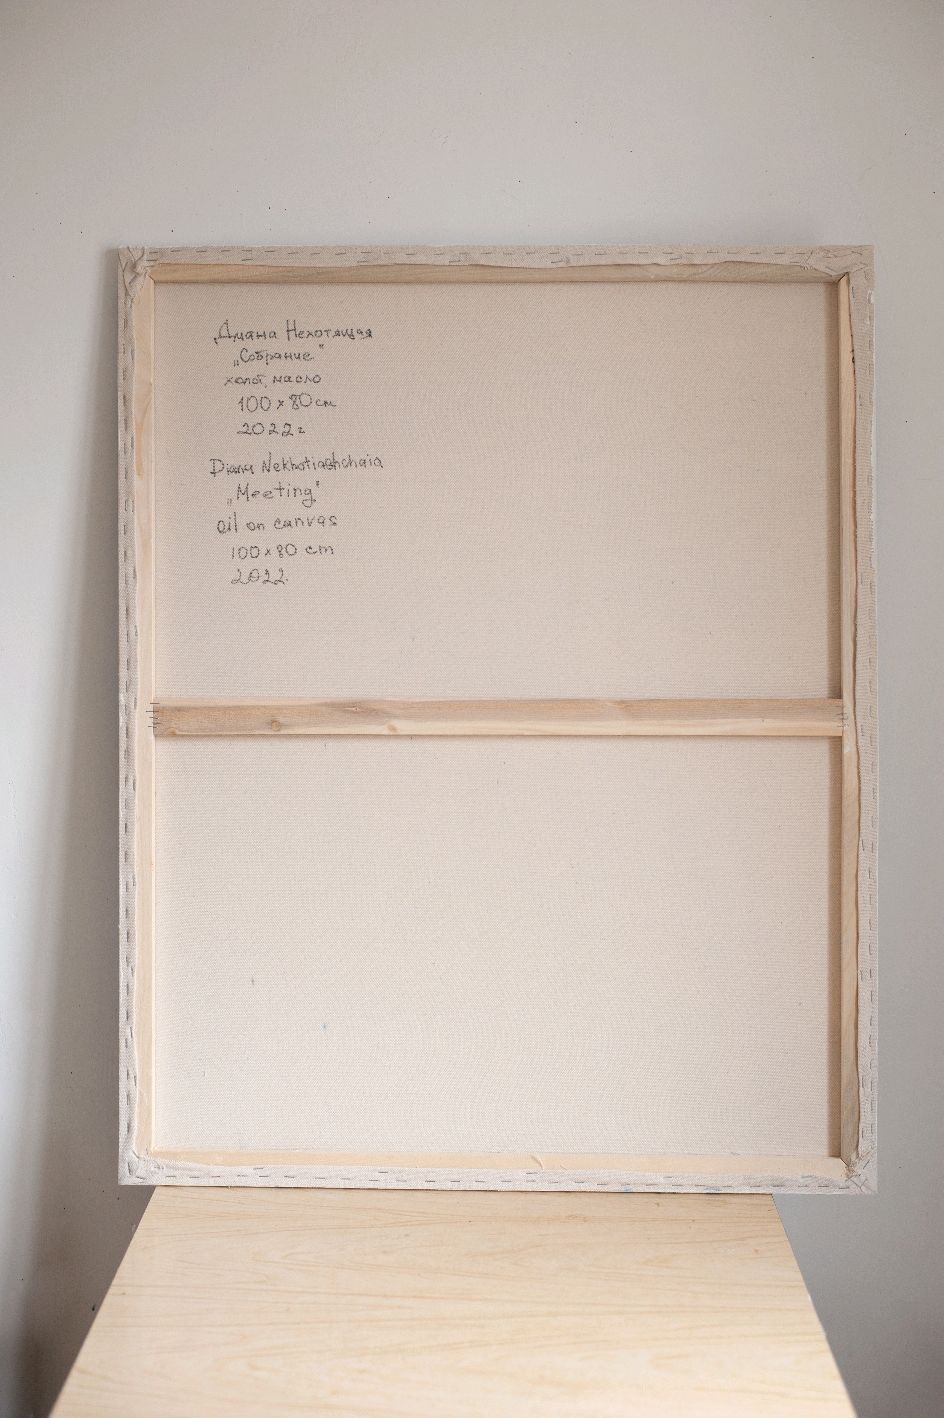 Диана Нехотящая
„Собрание"
холст, масло
100 x 80 см
2022 г
Diana Nekhotiashchaia
„Meeting"
oil on canvas
100 x 80 cm
2022.